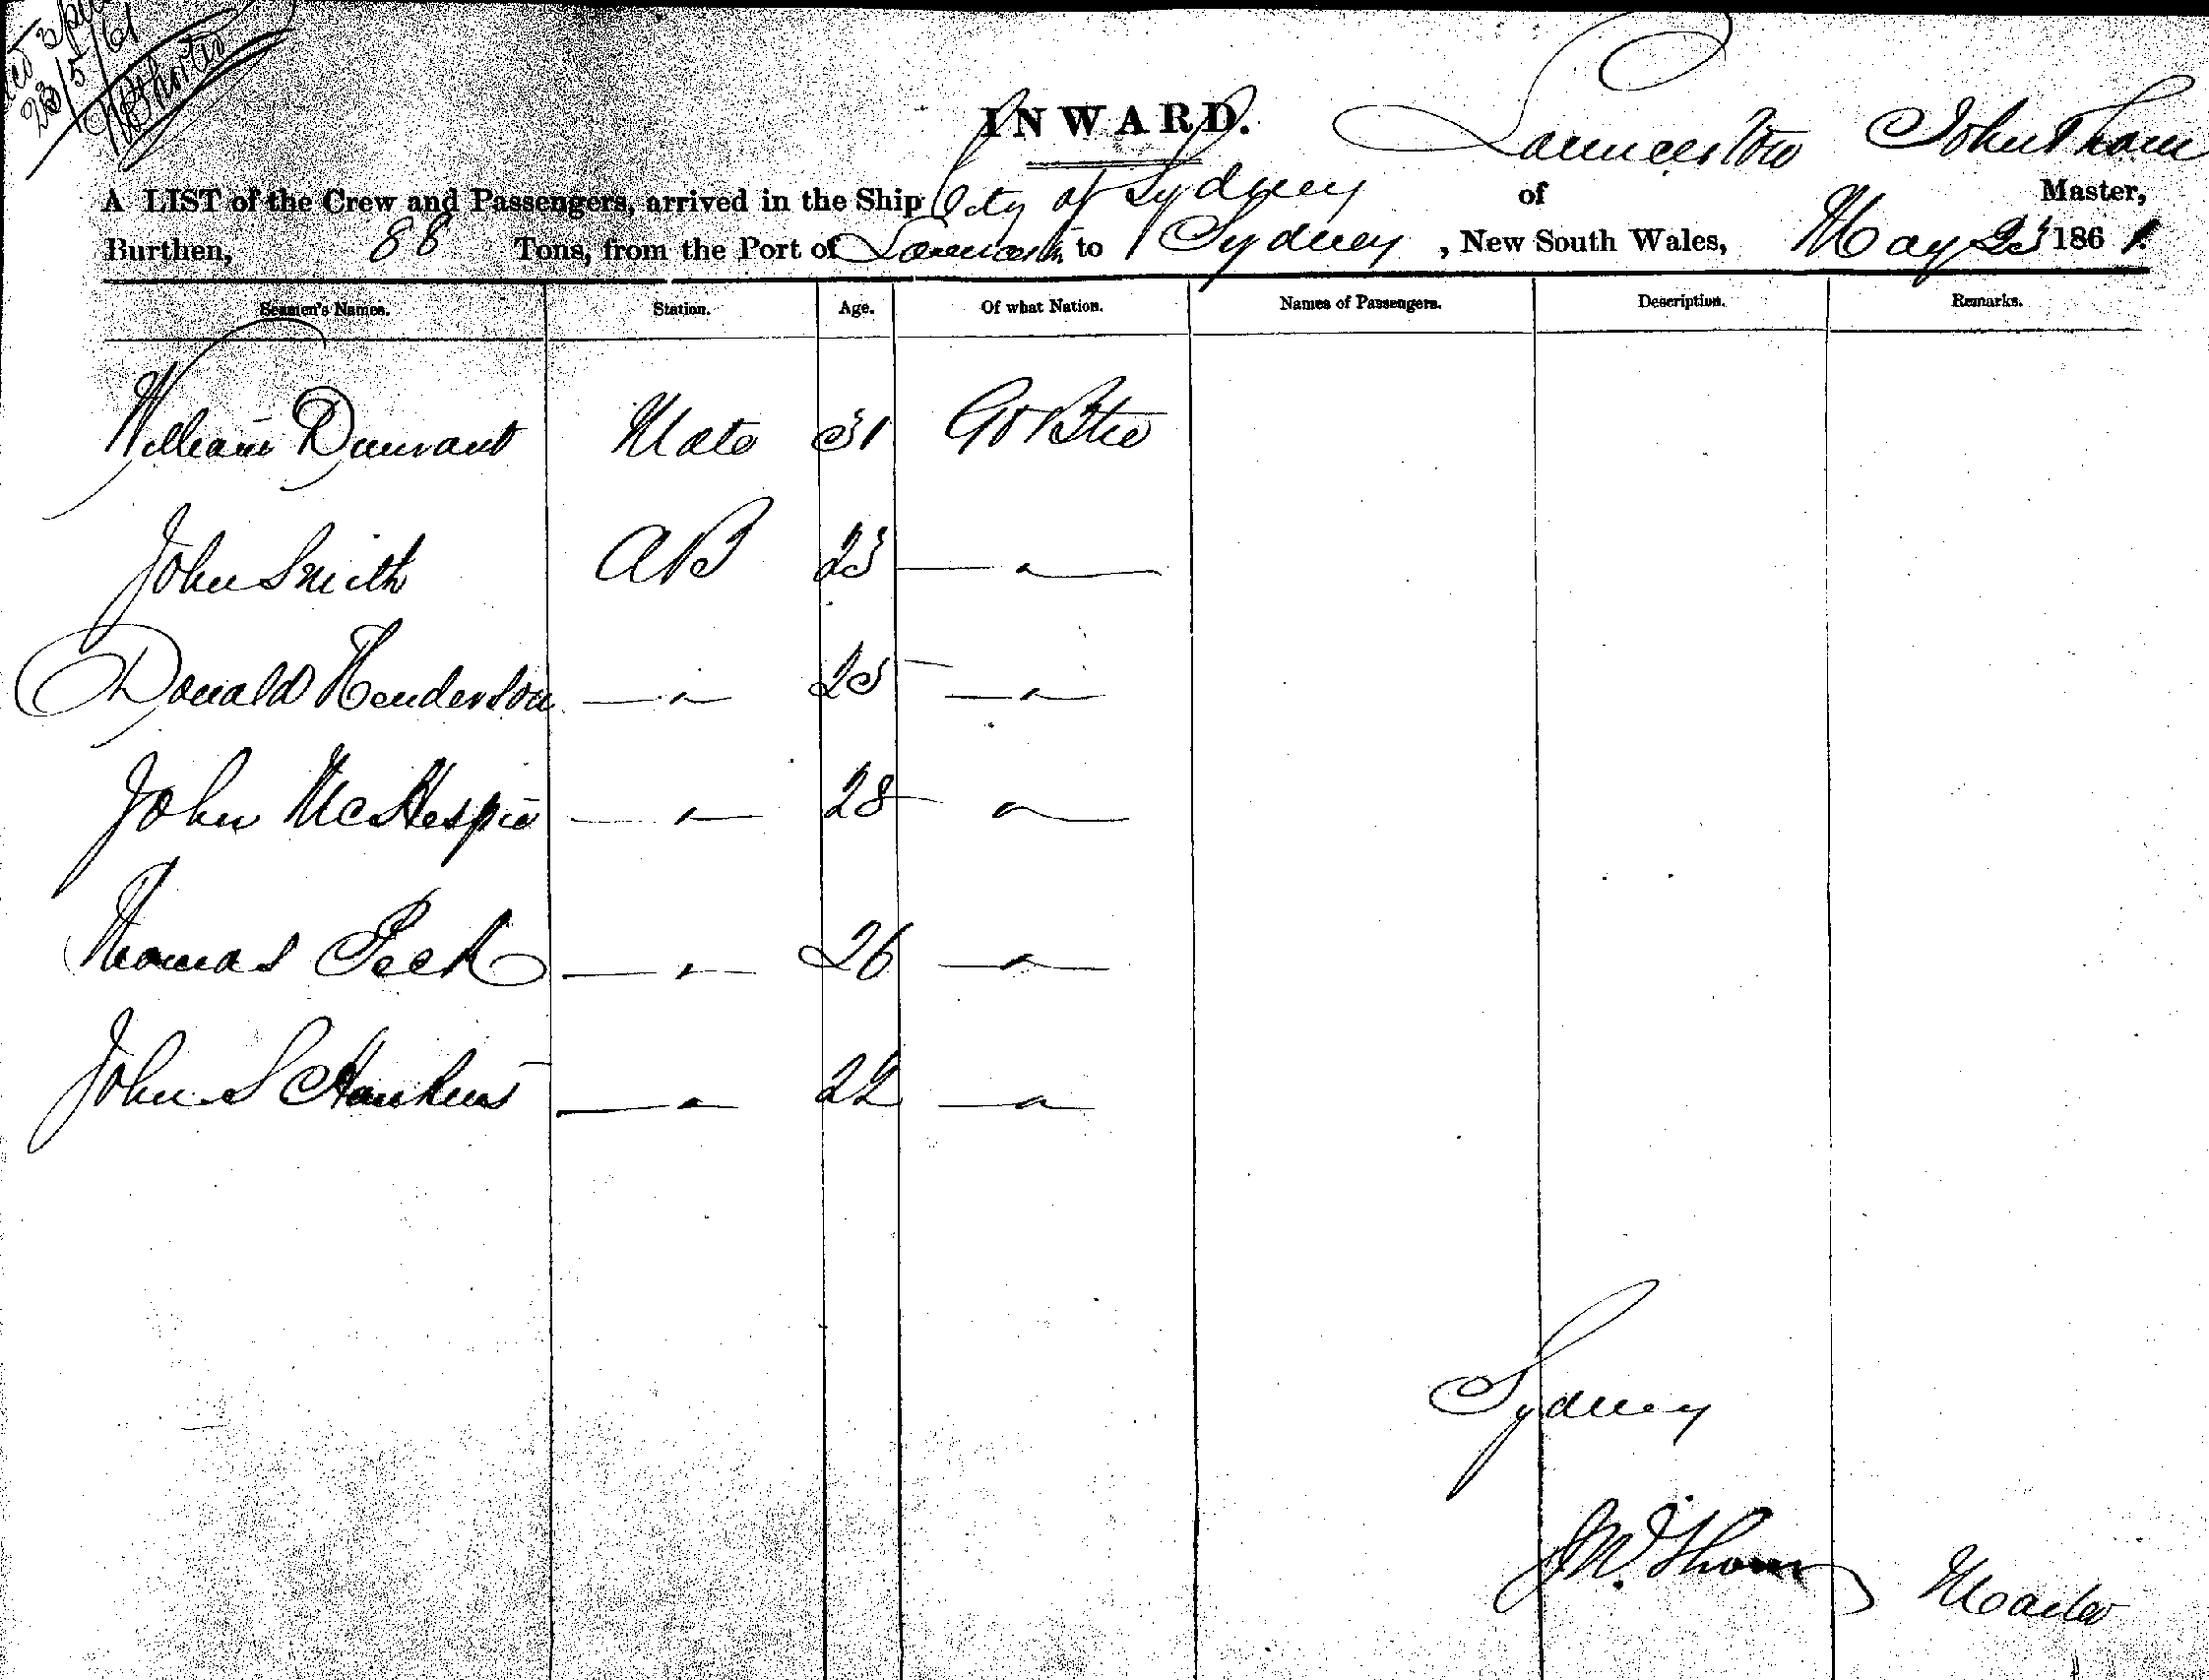 23/5/61
INWARD.
A LIST of the Crew and Passengers, arrived in the Ship City of Sydney of Launceston John Thom Master,
Burthen, 88 Tons, from the Port of Launceston to Sydney, New South Wales, May 23 1861.
Seamen's Names. Station. Age. Of what Nation. Names of Passengers. Description. Remarks.
William Durrant Mate 31 Gt Btn
John Smith AB 23 — " —
Donald Henderson — " — 25 — " —
John McHespie — " — 28 — " —
Thomas Peck — " — 26 — " —
John S Hankins — " — 22 — " —
Sydney
J W. Thom Master